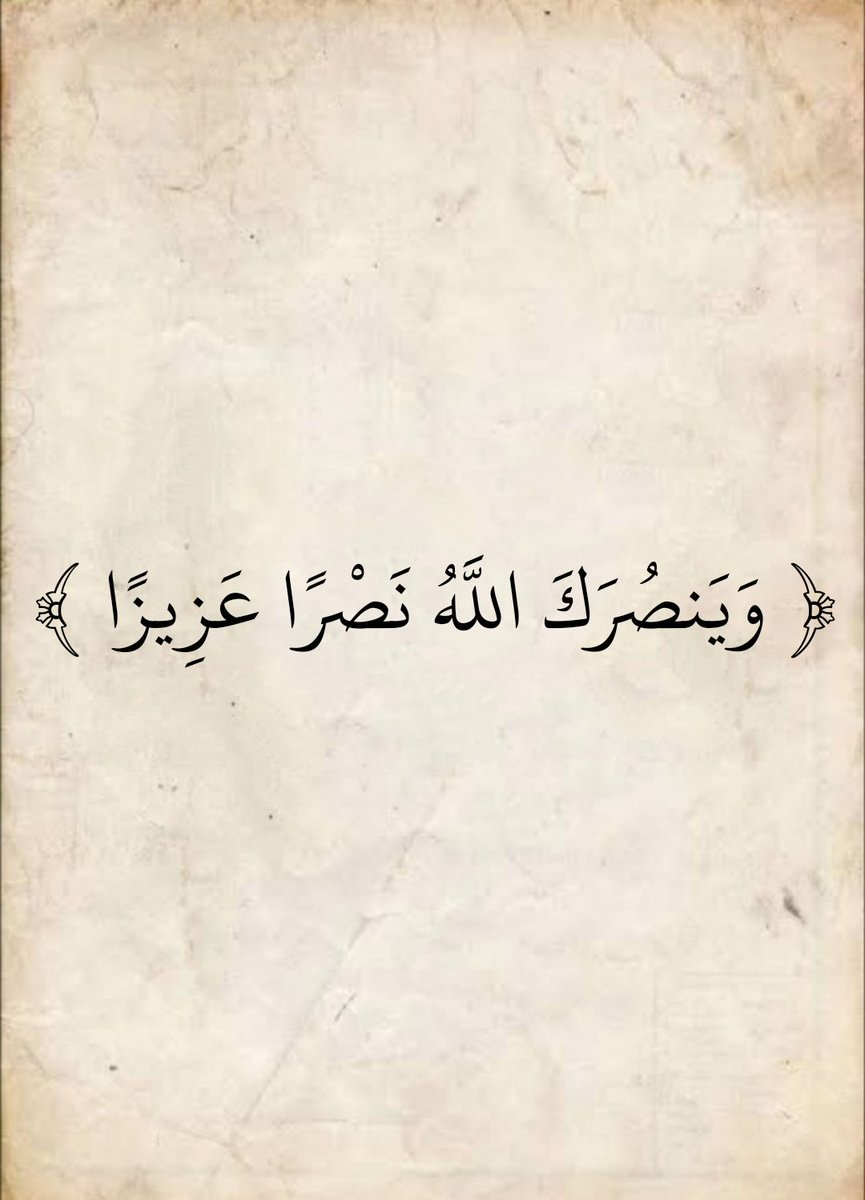 ﴿ وَيَنصُرَكَ اللَّهُ نَصْرًا عَزِيزًا ﴾